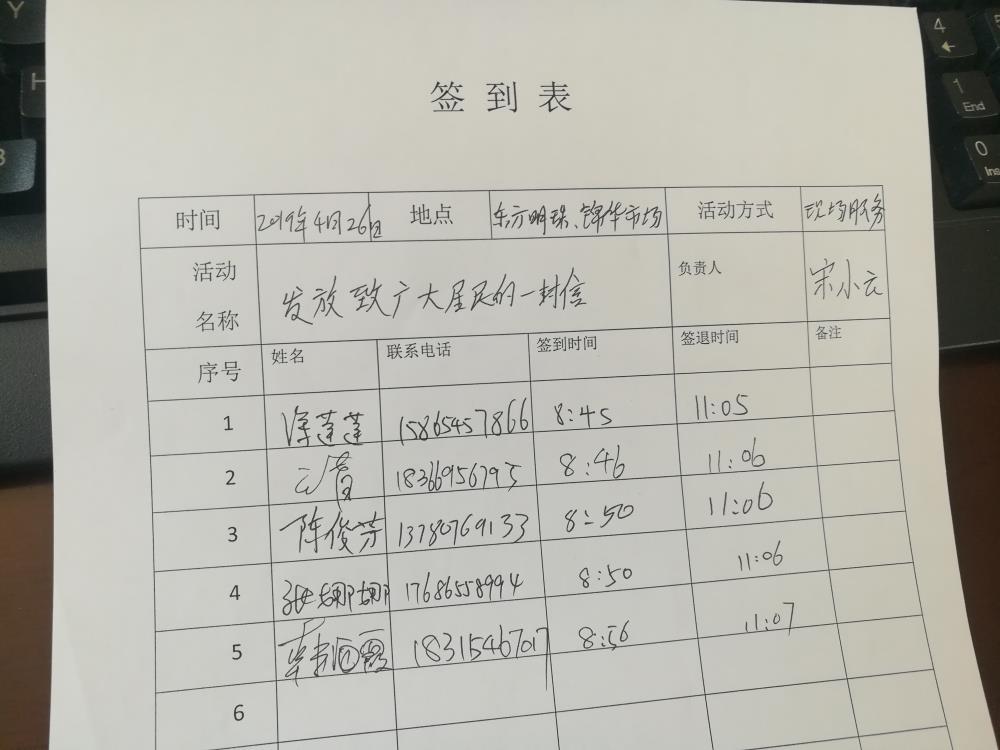 签到表
时间 2019年4月26日 地点 东方明珠、锦华市场 活动方式 现场服务
活动名称 发放致广大居民的一封信 负责人 宋小云
序号 姓名 联系电话 签到时间 签退时间 备注
1 徐莲莲 15865457866 8:45 11:05
2 18366956795 8:46 11:06
3 陈俊芳 13780769133 8:50 11:06
4 张娜娜 17686558994 8:50 11:06
5 18315467017 8:56 11:07
6
Y
H
4
1
End
0
Ins